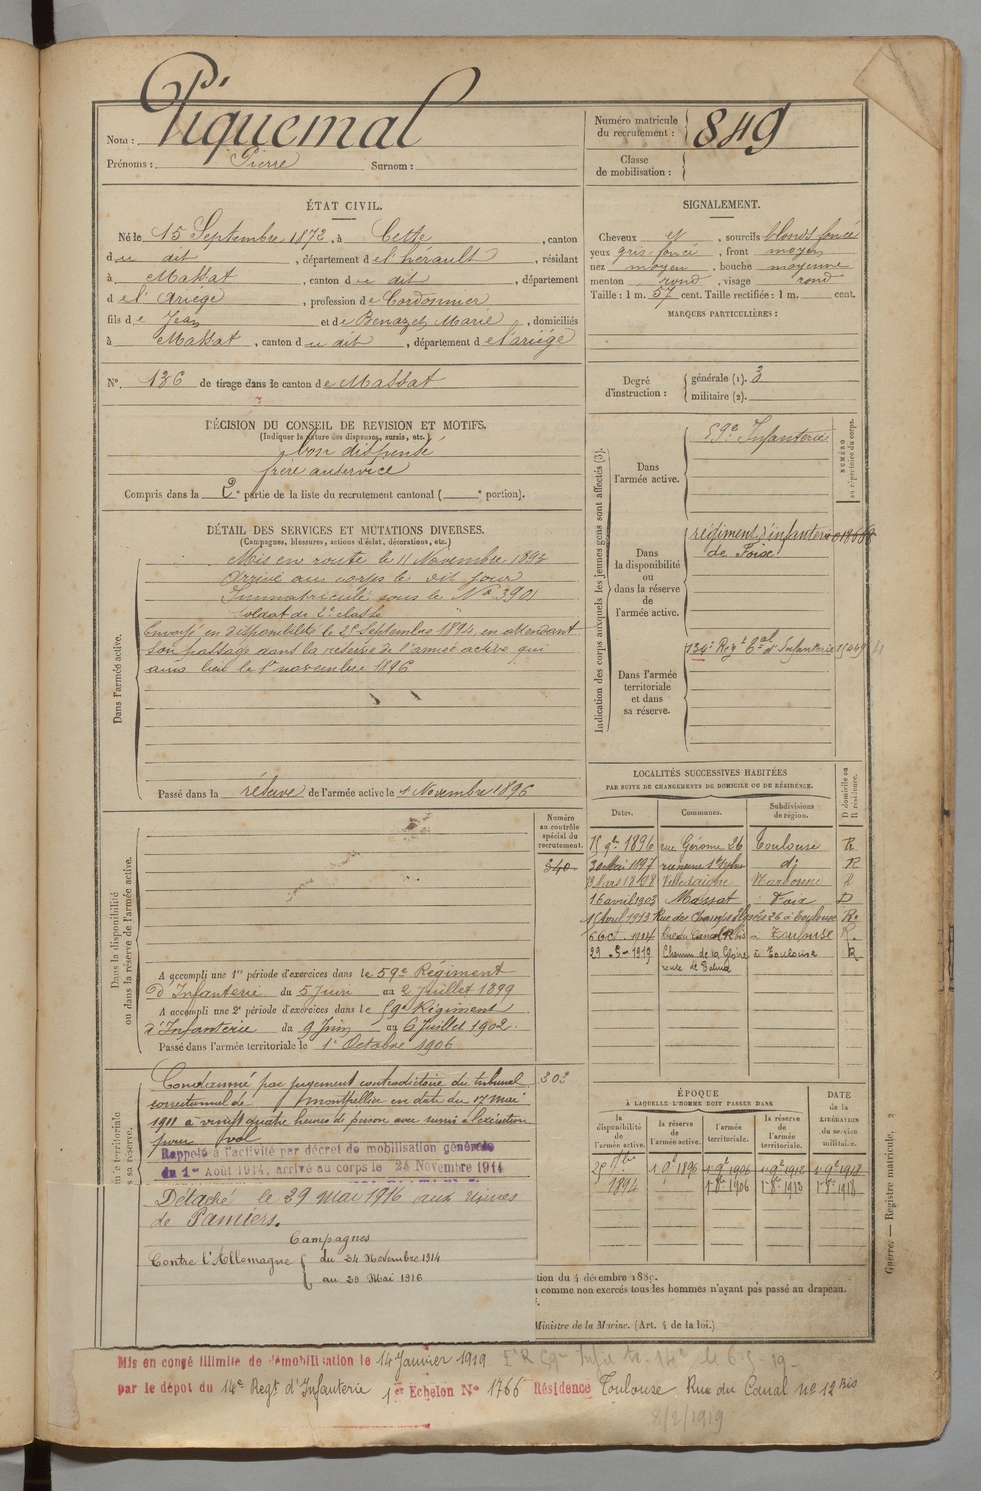 Nom : Piquemal
Prénoms : Pierre Surnom :
Numéro matricule du recrutement : 849
Classe de mobilisation :
ÉTAT CIVIL.
Né le 15 Septembre 1872, à Cette, canton
du dit, département de l'hérault, résidant
à Massat, canton du dit, département
de l'Ariége, profession de Cordonnier
fils de Jean et de Benazet Marie, domiciliés
à Massat, canton du dit, département de l'ariége
N° 136 de tirage dans le canton de Massat
3
DÉCISION DU CONSEIL DE REVISION ET MOTIFS.
(Indiquer la nature des dispenses, sursis, etc.)
bon dispensé
frère au service
Compris dans la 2e partie de la liste du recrutement cantonal ( e portion).
DÉTAIL DES SERVICES ET MUTATIONS DIVERSES.
(Campagnes, blessures, actions d'éclat, décorations, etc.)
Dans l'armée active.
Mis en route le 11 Novembre 1893
Arrivé au corps le dit jour
Immatriculé sous le No 3901
soldat de 2e classe
Envoyé en disponibilité le 25 Septembre 1894 en attendant
son passage dans la réserve de l'armée active qui
aura lieu le 1er novembre 1896
Passé dans la réserve de l'armée active le 1 Novembre 1896
Dans la disponibilité
ou dans la réserve de l'armée active.
Numéro
au contrôle
spécial du
recrutement.
340
A accompli une 1re période d'exercices dans le 59e Régiment
d'Infanterie du 5 Juin au 2 Juillet 1899
A accompli une 2e période d'exercices dans le 59e Régiment
d'Infanterie du 9 Juin au 6 Juillet 1902.
Passé dans l'armée territoriale le 1er Octobre 1906
303
Condamné par jugement contradictoire du tribunal
correctionnel de Montpellier en date du 17 mai
1911 à vingt quatre heures de prison avec sursis à l'exécution
pour vol
Rappelé à l'activité par décret de mobilisation générale
du 1er Août 1914, arrivé au corps le 24 Novembre 1914
Détaché le 29 Mai 1916 aux usines
de Pamiers.
Campagnes
Contre l'Allemagne { du 24 Novembre 1914
au 29 Mai 1916
SIGNALEMENT.
Cheveux et, sourcils blonds foncé
yeux gris foncé, front moyen
nez moyen, bouche moyenne
menton rond, visage rond
Taille : 1 m. 57 cent. Taille rectifiée : 1 m. cent.
MARQUES PARTICULIÈRES :
Degré d'instruction : générale (1). 3
militaire (2).
Indication des corps auxquels les jeunes gens sont affectés (3).
NUMÉRO
au répertoire du corps.
Dans
l'armée active.
59e Infanterie
Dans
la disponibilité
ou
dans la réserve
de
l'armée active.
régiment d'infanterie
de Foix
Dans l'armée
territoriale
et dans
sa réserve.
134e Regt tal d'Infanterie
LOCALITÉS SUCCESSIVES HABITÉES
PAR SUITE DE CHANGEMENTS DE DOMICILE OU DE RÉSIDENCE.
Dates. Communes. Subdivisions de région. D domicile ou R résidence.
15 9bre 1896 rue Gérome 26 Toulouse R
30 Mai 1897 di R
Mars 1898 Villedaigne Narbonne R
16 avril 1903 Massat Foix D
15 Aout 1913 Rue des Champs Elysées 26 à Toulouse R.
6 Oct. 1914 Rue du Canal 12 bis à Toulouse R.
29-5-1919 Chemin de la Gloire à Toulouse R
route de Balma
ÉPOQUE
À LAQUELLE L'HOMME DOIT PASSER DANS
DATE
de la
LIBÉRATION
du service
militaire.
la
disponibilité
de
l'armée active.
la réserve
de
l'armée active.
l'armée
territoriale.
la réserve
de
l'armée
territoriale.
25 7bre 1 9e 1896 1er 9e 1906 1er 9e 1912 1er 9e 1918
1894 1er 8bre 1906 1er 8re 1913 1er 8re 1918
tion du 4 décembre 1889.
comme non exercés tous les hommes n'ayant pas passé au drapeau.
Ministre de la Marine. (Art. 4 de la loi.)
Guerre. — Registre matricule, 2
Mis en congé illimité de démobilisation le 14 Janvier 1919
par le dépot du 14e Regt d'Infanterie 1er Echelon No 1766 Résidence Toulouse Rue du Canal no 12 Bis
8/2/1919